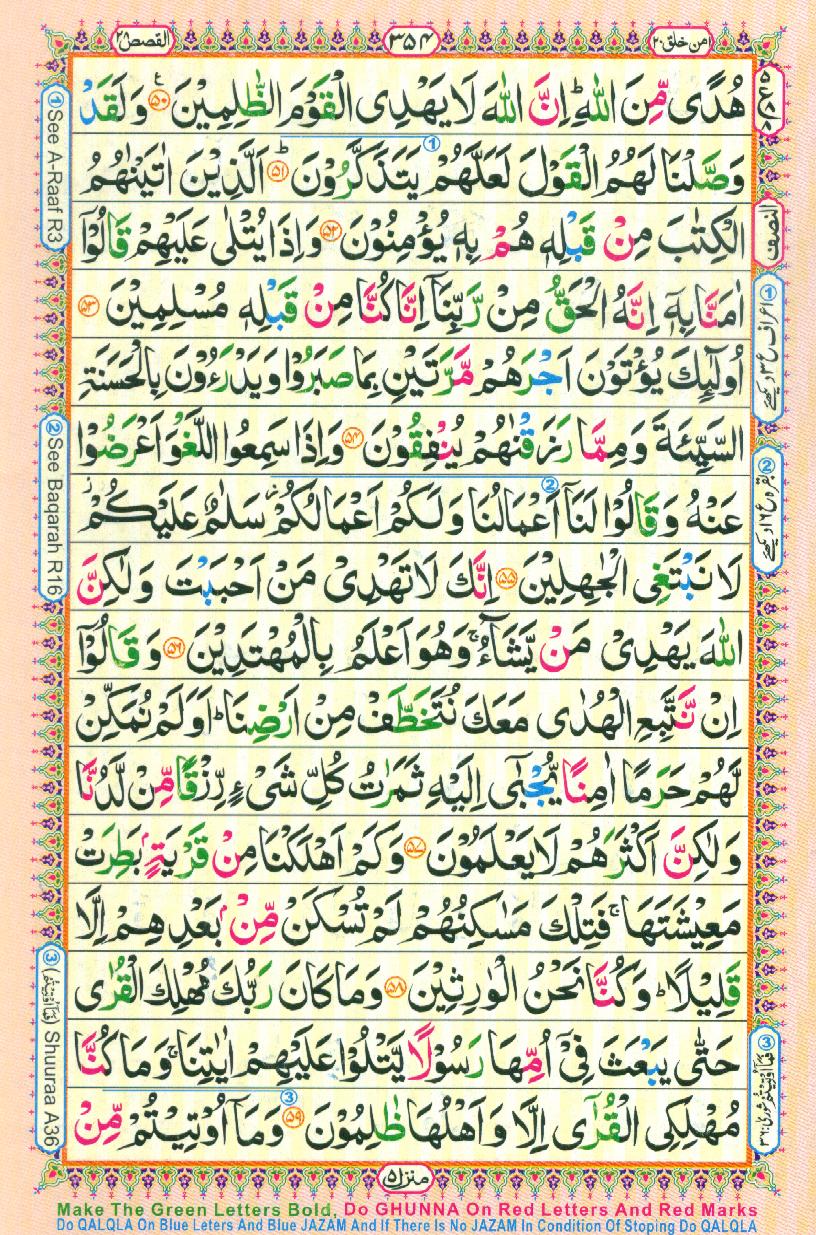 امن خلق٢٠
٣٥٤
القصص٢٨
هُدًى مِّنَ اللّٰهِ ؕ اِنَّ اللّٰهَ لَا يَهْدِى الْقَوْمَ الظّٰلِمِيْنَ ۵۰ وَلَقَدْ
وَصَّلْنَا لَهُمُ الْقَوْلَ لَعَلَّهُمْ يَتَذَكَّرُوْنَ ؕ ۵۱ اَلَّذِيْنَ اٰتَيْنٰهُمُ
الْكِتٰبَ مِنْ قَبْلِهٖ هُمْ بِهٖ يُؤْمِنُوْنَ ۵۲ وَاِذَا يُتْلٰى عَلَيْهِمْ قَالُوْۤا
اٰمَنَّا بِهٖۤ اِنَّهُ الْحَقُّ مِنْ رَّبِّنَاۤ اِنَّا كُنَّا مِنْ قَبْلِهٖ مُسْلِمِيْنَ ۵۳
اُولٰٓئِكَ يُؤْتَوْنَ اَجْرَهُمْ مَّرَّتَيْنِ بِمَا صَبَرُوْا وَيَدْرَءُوْنَ بِالْحَسَنَةِ
السَّيِّئَةَ وَمِمَّا رَزَقْنٰهُمْ يُنْفِقُوْنَ ۵۴ وَاِذَا سَمِعُوا اللَّغْوَ اَعْرَضُوْا
عَنْهُ وَقَالُوْا لَنَاۤ اَعْمَالُنَا وَلَكُمْ اَعْمَالُكُمْ ؗ سَلٰمٌ عَلَيْكُمْ ؗ
لَا نَبْتَغِى الْجٰهِلِيْنَ ۵۵ اِنَّكَ لَا تَهْدِىْ مَنْ اَحْبَبْتَ وَلٰكِنَّ
اللّٰهَ يَهْدِىْ مَنْ يَّشَآءُ ۚ وَهُوَ اَعْلَمُ بِالْمُهْتَدِيْنَ ۵۶ وَقَالُوْۤا
اِنْ نَّتَّبِعِ الْهُدٰى مَعَكَ نُتَخَطَّفْ مِنْ اَرْضِنَا ؕ اَوَلَمْ نُمَكِّنْ
لَّهُمْ حَرَمًا اٰمِنًا يُّجْبٰٓى اِلَيْهِ ثَمَرٰتُ كُلِّ شَىْءٍ رِّزْقًا مِّنْ لَّدُنَّا
وَلٰكِنَّ اَكْثَرَهُمْ لَا يَعْلَمُوْنَ ۵۷ وَكَمْ اَهْلَكْنَا مِنْ قَرْيَةٍۭ بَطِرَتْ
مَعِيْشَتَهَا ۚ فَتِلْكَ مَسٰكِنُهُمْ لَمْ تُسْكَنْ مِّنْۢ بَعْدِهِمْ اِلَّا
قَلِيْلًا ؕ وَكُنَّا نَحْنُ الْوٰرِثِيْنَ ۵۸ وَمَا كَانَ رَبُّكَ مُهْلِكَ الْقُرٰى
حَتّٰى يَبْعَثَ فِىْۤ اُمِّهَا رَسُوْلًا يَّتْلُوْا عَلَيْهِمْ اٰيٰتِنَا ۚ وَمَا كُنَّا
مُهْلِكِى الْقُرٰٓى اِلَّا وَاَهْلُهَا ظٰلِمُوْنَ ۵۹ وَمَاۤ اُوْتِيْتُمْ مِّنْ
النصف
① اعراف ع٣ دیکھئے
① See A-Raaf R3
② See Baqarah R16
③ Shuuraa A36
منزل ۵
Make The Green Letters Bold, Do GHUNNA On Red Letters And Red Marks
Do QALQLA On Blue Leters And Blue JAZAM And If There Is No JAZAM In Condition Of Stoping Do QALQLA